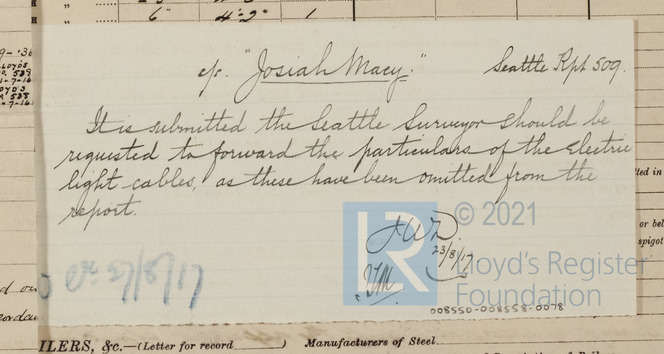 6" 4'-2" 1
S/S. "Josiah Macy." Seattle Rpt 509.
It is submitted the Seattle Surveyor should be
requested to forward the particulars of the Electric
light cables, as these have been omitted from the
report.
JWD.
23/8/17
LR
© 2021
Lloyd's Register
Foundation
008550-008558-0078
23/8/17
tted in
or bel
spigot
ILERS, &c.—(Letter for record ) Manufacturers of Steel